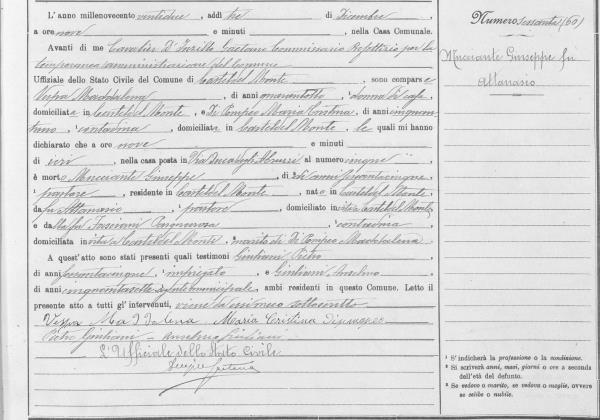 L'anno millenovecento ventidue, addì tre di Dicembre,
a ore nove e minuti, nella Casa Comunale.
Avanti di me Cavalier D' Gaetano Commissario Prefettizio per la
temporanea amministrazione del Comune
Uffiziale dello Stato Civile del Comune di Casteldelmonte, sono comparse
Vespa Maddalena, di anni quarantotto, donna di casa,
domiciliata in Casteldelmonte, e Di Pompeo Maria Cristina, di anni cinquan
tuno, contadina, domiciliata in Casteldelmonte, le quali mi hanno
dichiarato che a ore nove e minuti
di ieri, nella casa posta in Via Duca degli Abruzzi al numero cinque,
è morto Mucciante Giuseppe, di anni
pastore, residente in Casteldelmonte, nato in Casteldelmonte,
da fu Attanasio, pastore, domiciliato in vita Casteldelmonte
e dalla fu Fasciani, contadina,
domiciliata in vita a Casteldelmonte, marito di Di Pompeo Maddalena
A quest'atto sono stati presenti quali testimoni Giuliani Pietro,
di anni, impiegato, e Giuliani Anselmo,
di anni cinquantasette, municipale, ambi residenti in questo Comune. Letto il
presente atto a tutti gl'intervenuti, viene da essi meco sottoscritto
Vespa Maddalena Maria Cristina Dipompeo
Pietro Giuliani - Anselmo Giuliani
L'Uffiziale dello Stato Civile
Numero sessanta (60)
Mucciante Giuseppe fu
Attanasio
¹ S'indicherà la professione o la condizione.
² Si scriveranno anni, mesi, giorni o ore a seconda
dell'età del defunto.
³ Se vedovo o marito, se vedova o moglie, ovvero
se celibe o nubile.